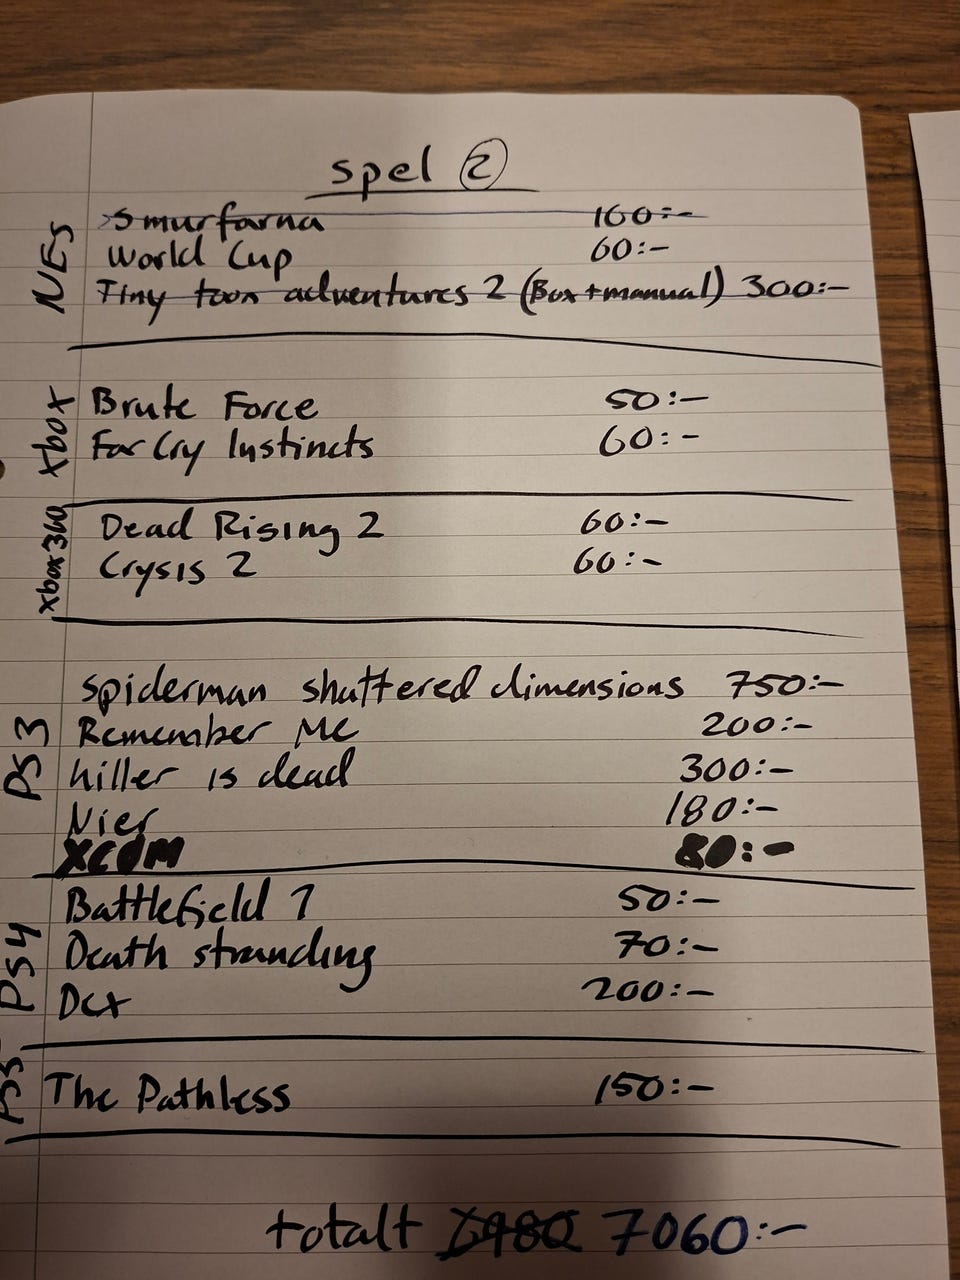 spel 2
NES
Smurfarna 160:-
World Cup 60:-
Tiny toon adventures 2 (Box+manual) 300:-
Xbox
Brute Force 50:-
Far Cry Instincts 60:-
Xbox360
Dead Rising 2 60:-
Crysis 2 60:-
PS3
Spiderman shattered dimensions 750:-
Remember Me 200:-
killer is dead 300:-
Nier 180:-
XCOM 80:-
PS4
Battlefield 1 50:-
Death stranding 70:-
Dex 200:-
PS5
The Pathless 150:-
totalt 6980 7060:-